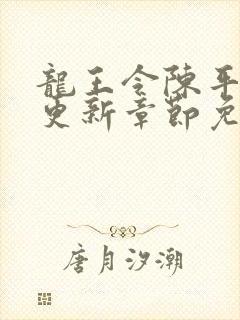 龍王令陳平
更新章節免
唐月汐潮